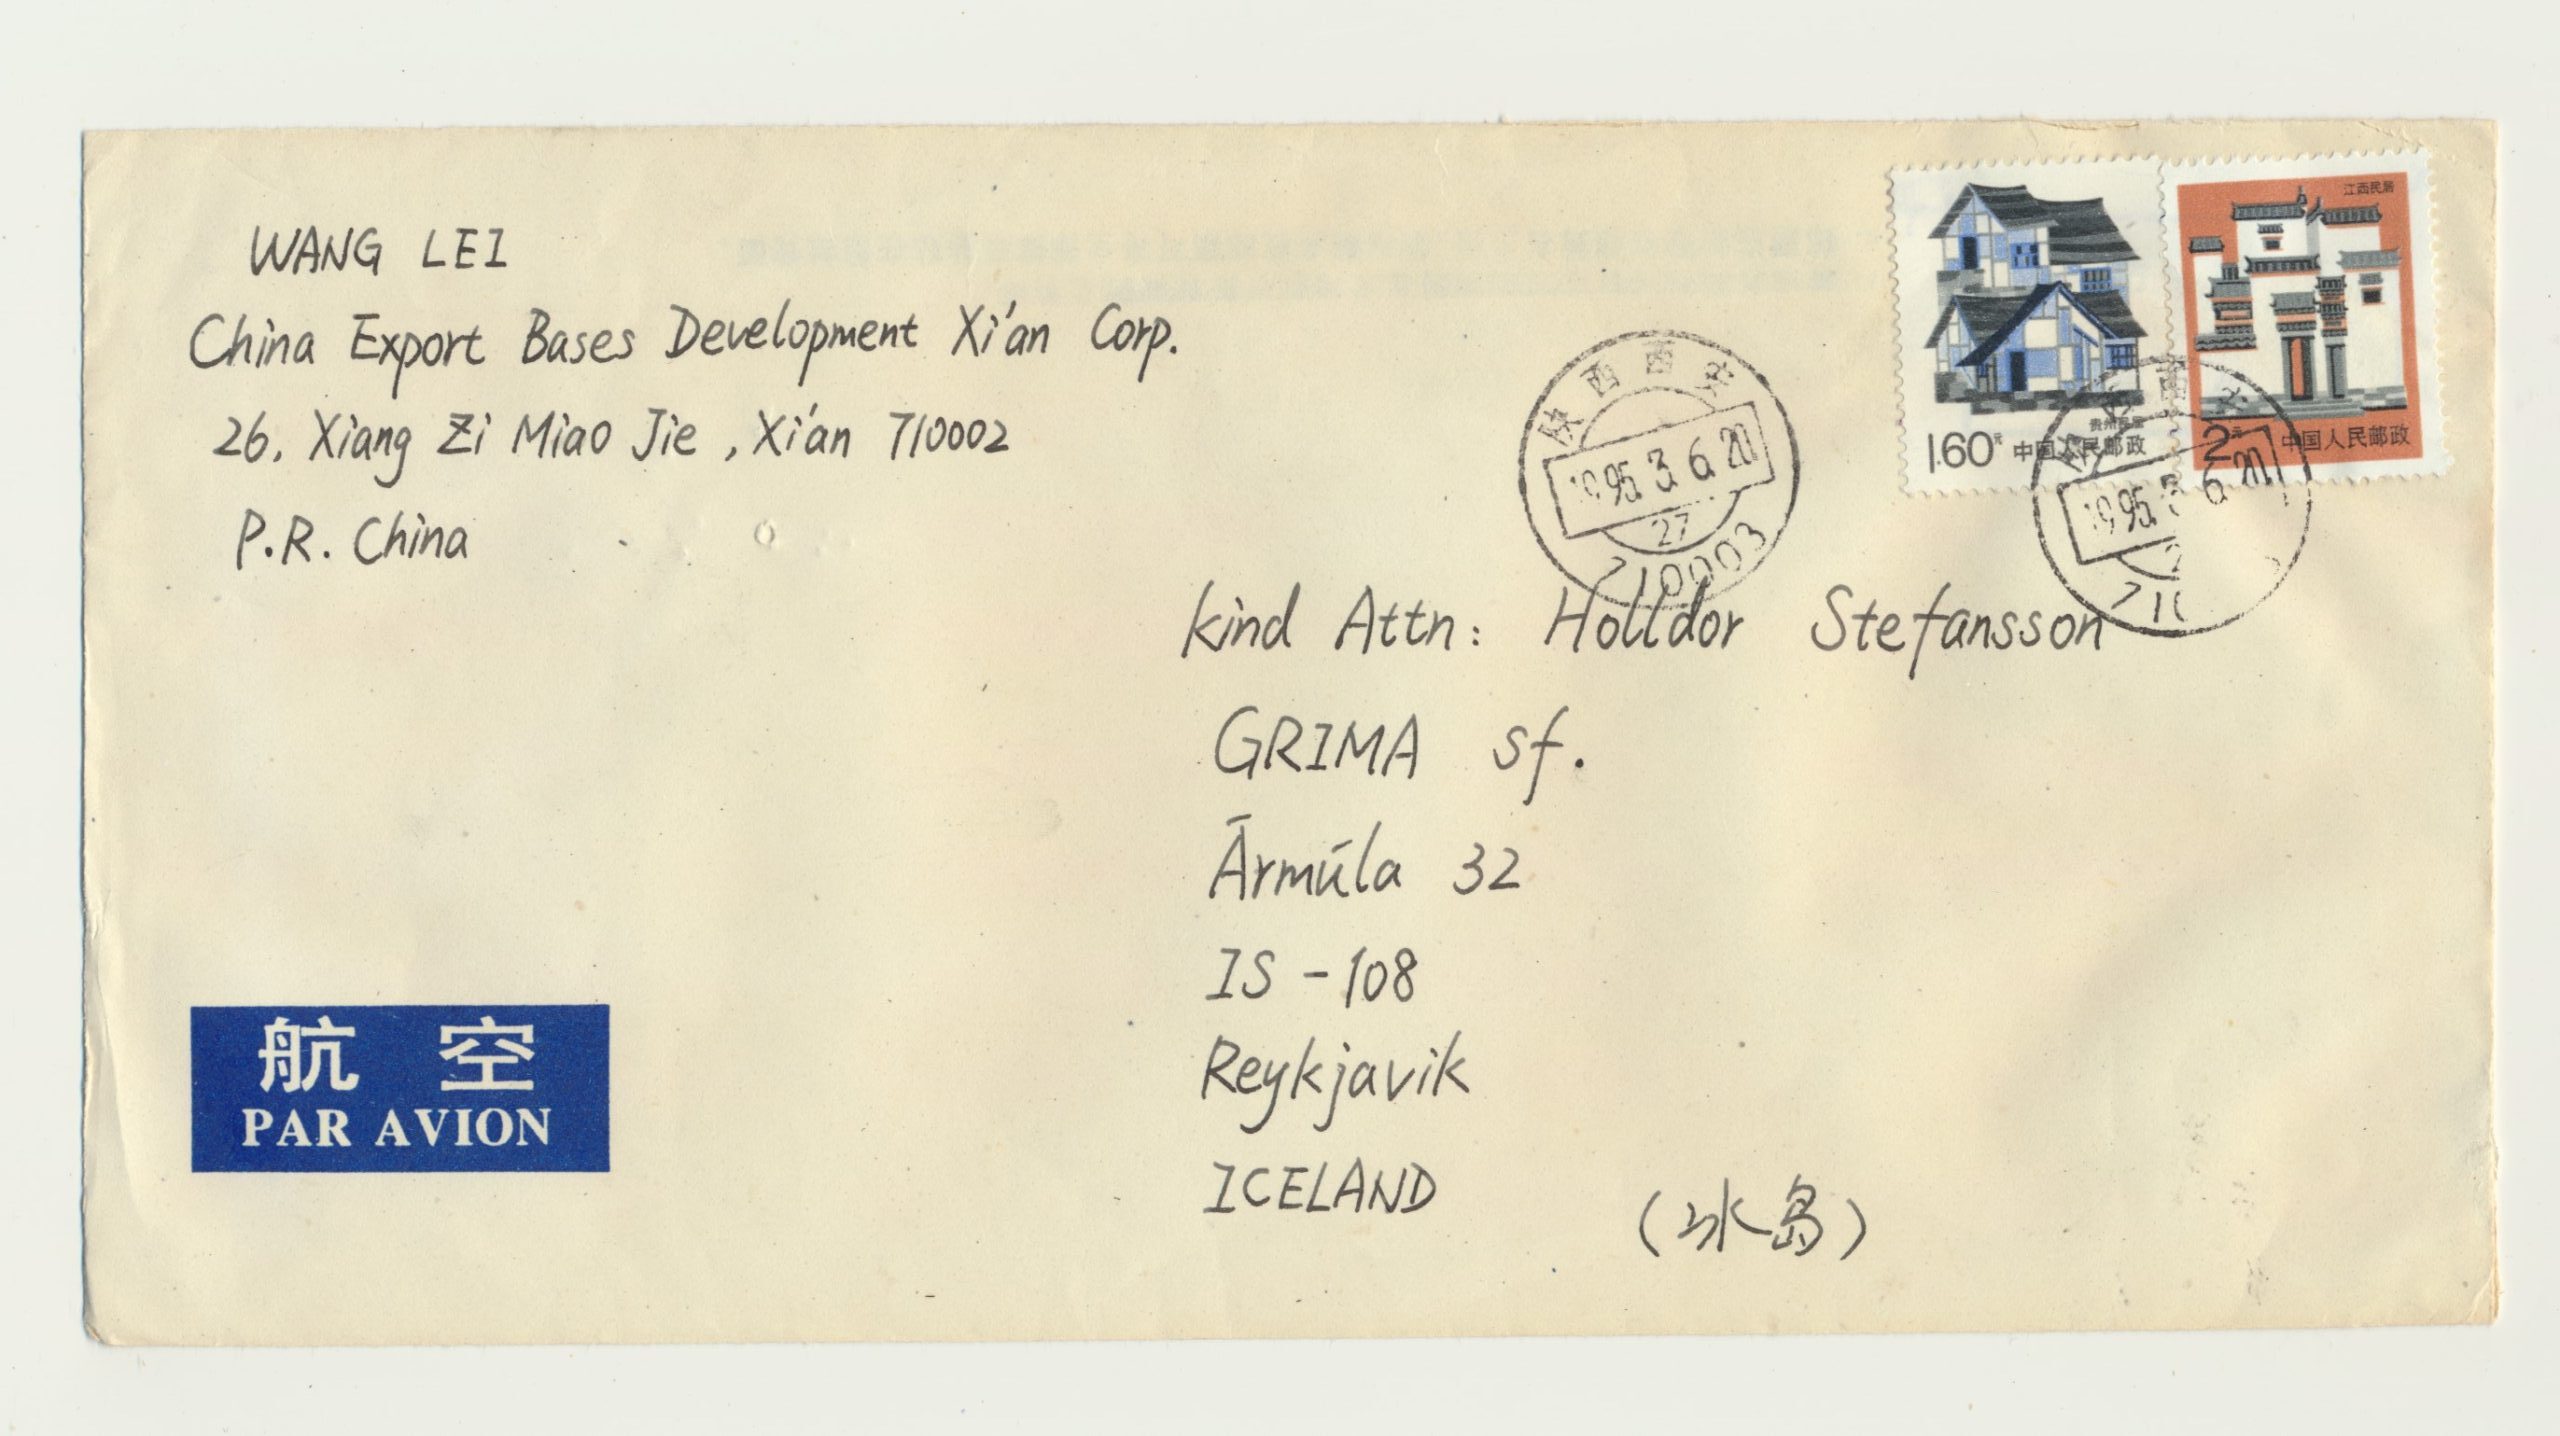 WANG LEI
China Export Bases Development Xi'an Corp.
26, Xiang Zi Miao Jie, Xi'an 710002
P.R. China
江西民居
贵州民居
1.60元 中国人民邮政
2元 中国人民邮政
陕西西安
1995.3.6.20
27
710003
西安
1995.3.6.20
kind Attn: Holldor Stefansson
GRIMA sf.
Ārmúla 32
IS-108
Reykjavik
ICELAND
(冰岛)
航空
PAR AVION